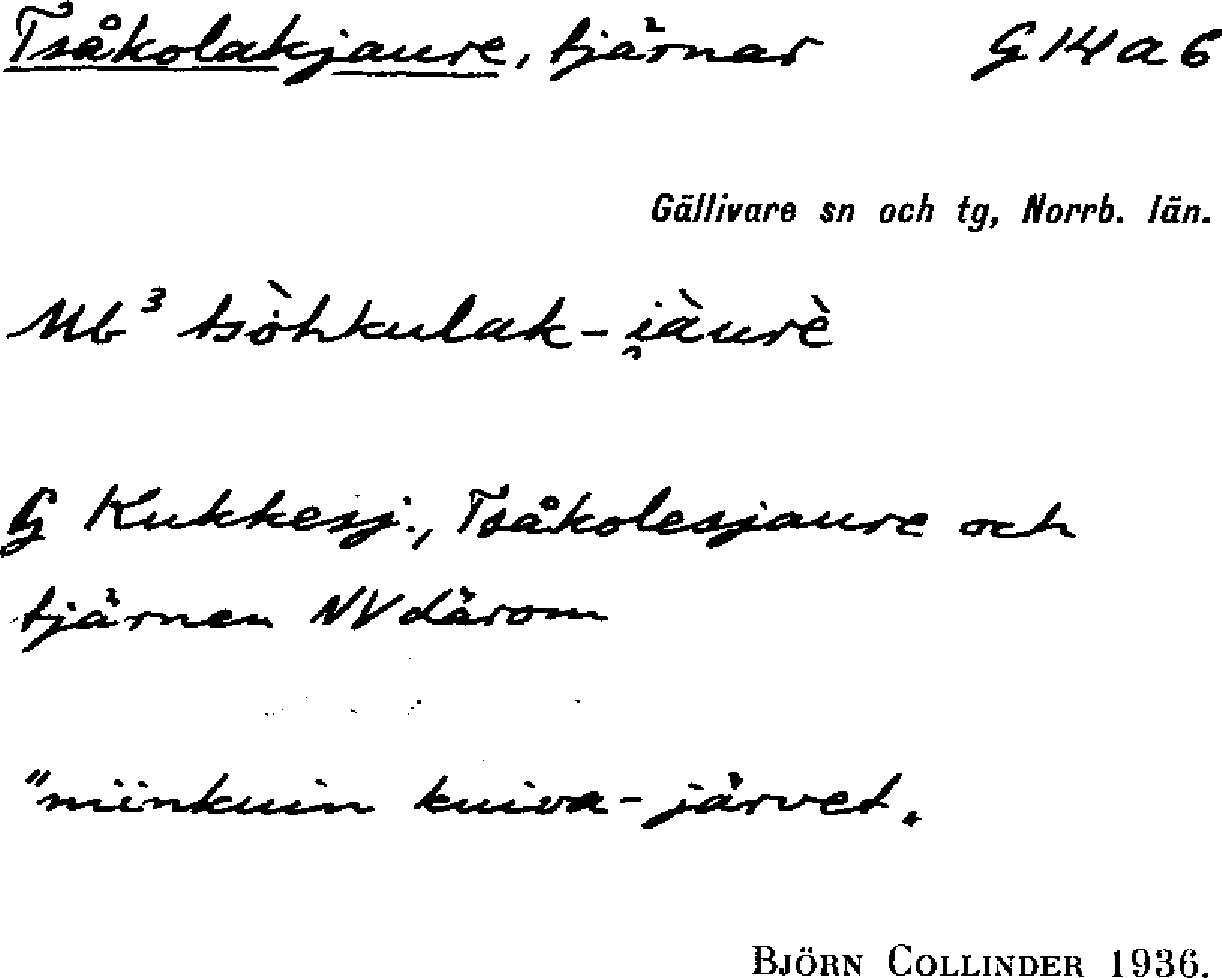 Tsåkolakjaure, tjärnar G 14 a 6
Gällivare sn och tg, Norrb. län.
Mb³ tsòhkulak-i̯àurè
G Kukkesj., Tsåkolesjaure och
tjärnen NV därom
"niinkuin kuiva-järvet.
BJÖRN COLLINDER 1936.